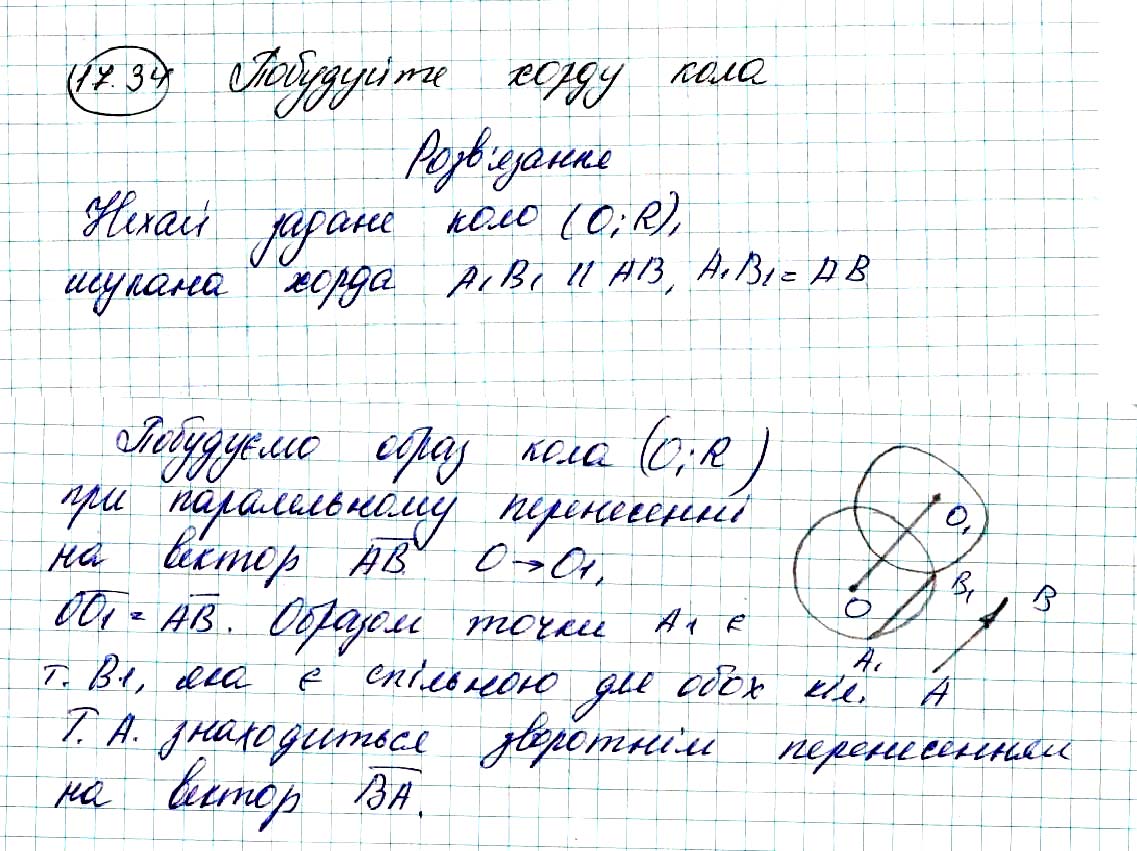 17.34 Побудуйте хорду кола
Розв'язання
Нехай задане коло (O; R),
шукана хорда A₁B₁ || AB, A₁B₁ = AB
Побудуємо образ кола (O; R)
при паралельному перенесенні
на вектор AB. O → O₁,
OO₁ = AB. Образом точки A₁ є
т. B₁, яка є спільною для обох кіл.
Т. A. знаходиться зворотнім перенесенням
на вектор BA.
O₁
B₁
B
O
A₁
A